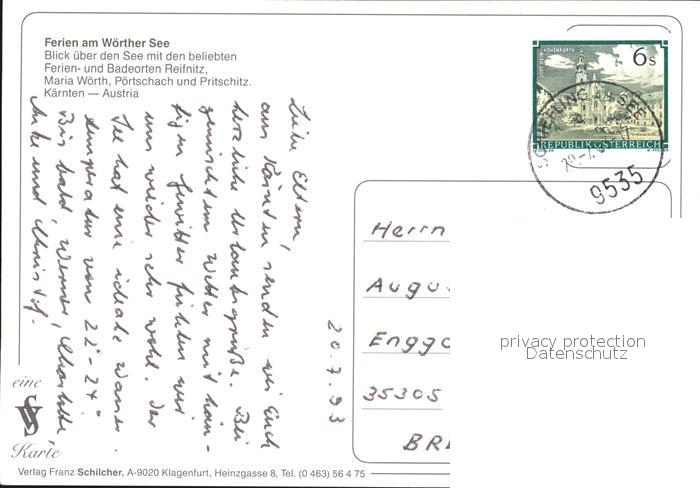 Ferien am Wörther See
Blick über den See mit den beliebten
Ferien- und Badeorten Reifnitz,
Maria Wörth, Pörtschach und Pritschitz.
Kärnten — Austria
6s
STIFT REIN-HOHENFURTH
REPUBLIK ÖSTERREICH
SCHIEFLING AM SEE
9535
Liebe Eltern,
aus Kärnten senden wir Euch
herzliche Urlaubsgrüße. Bei
gemischtem Wetter mit häu-
figen Gewitter fühlen wir
uns wieder sehr wohl. Der
See hat eine ideale Wasser-
temperatur von 22°-24°
Bis bald, Werner, Charlotte,
Anke und Christof.
20.7.93
Herrn
Augu
Engg
35305
BRE
privacy protection
Datenschutz
eine
VS
Karte
Verlag Franz Schilcher, A-9020 Klagenfurt, Heinzgasse 8, Tel. (0 463) 56 4 75